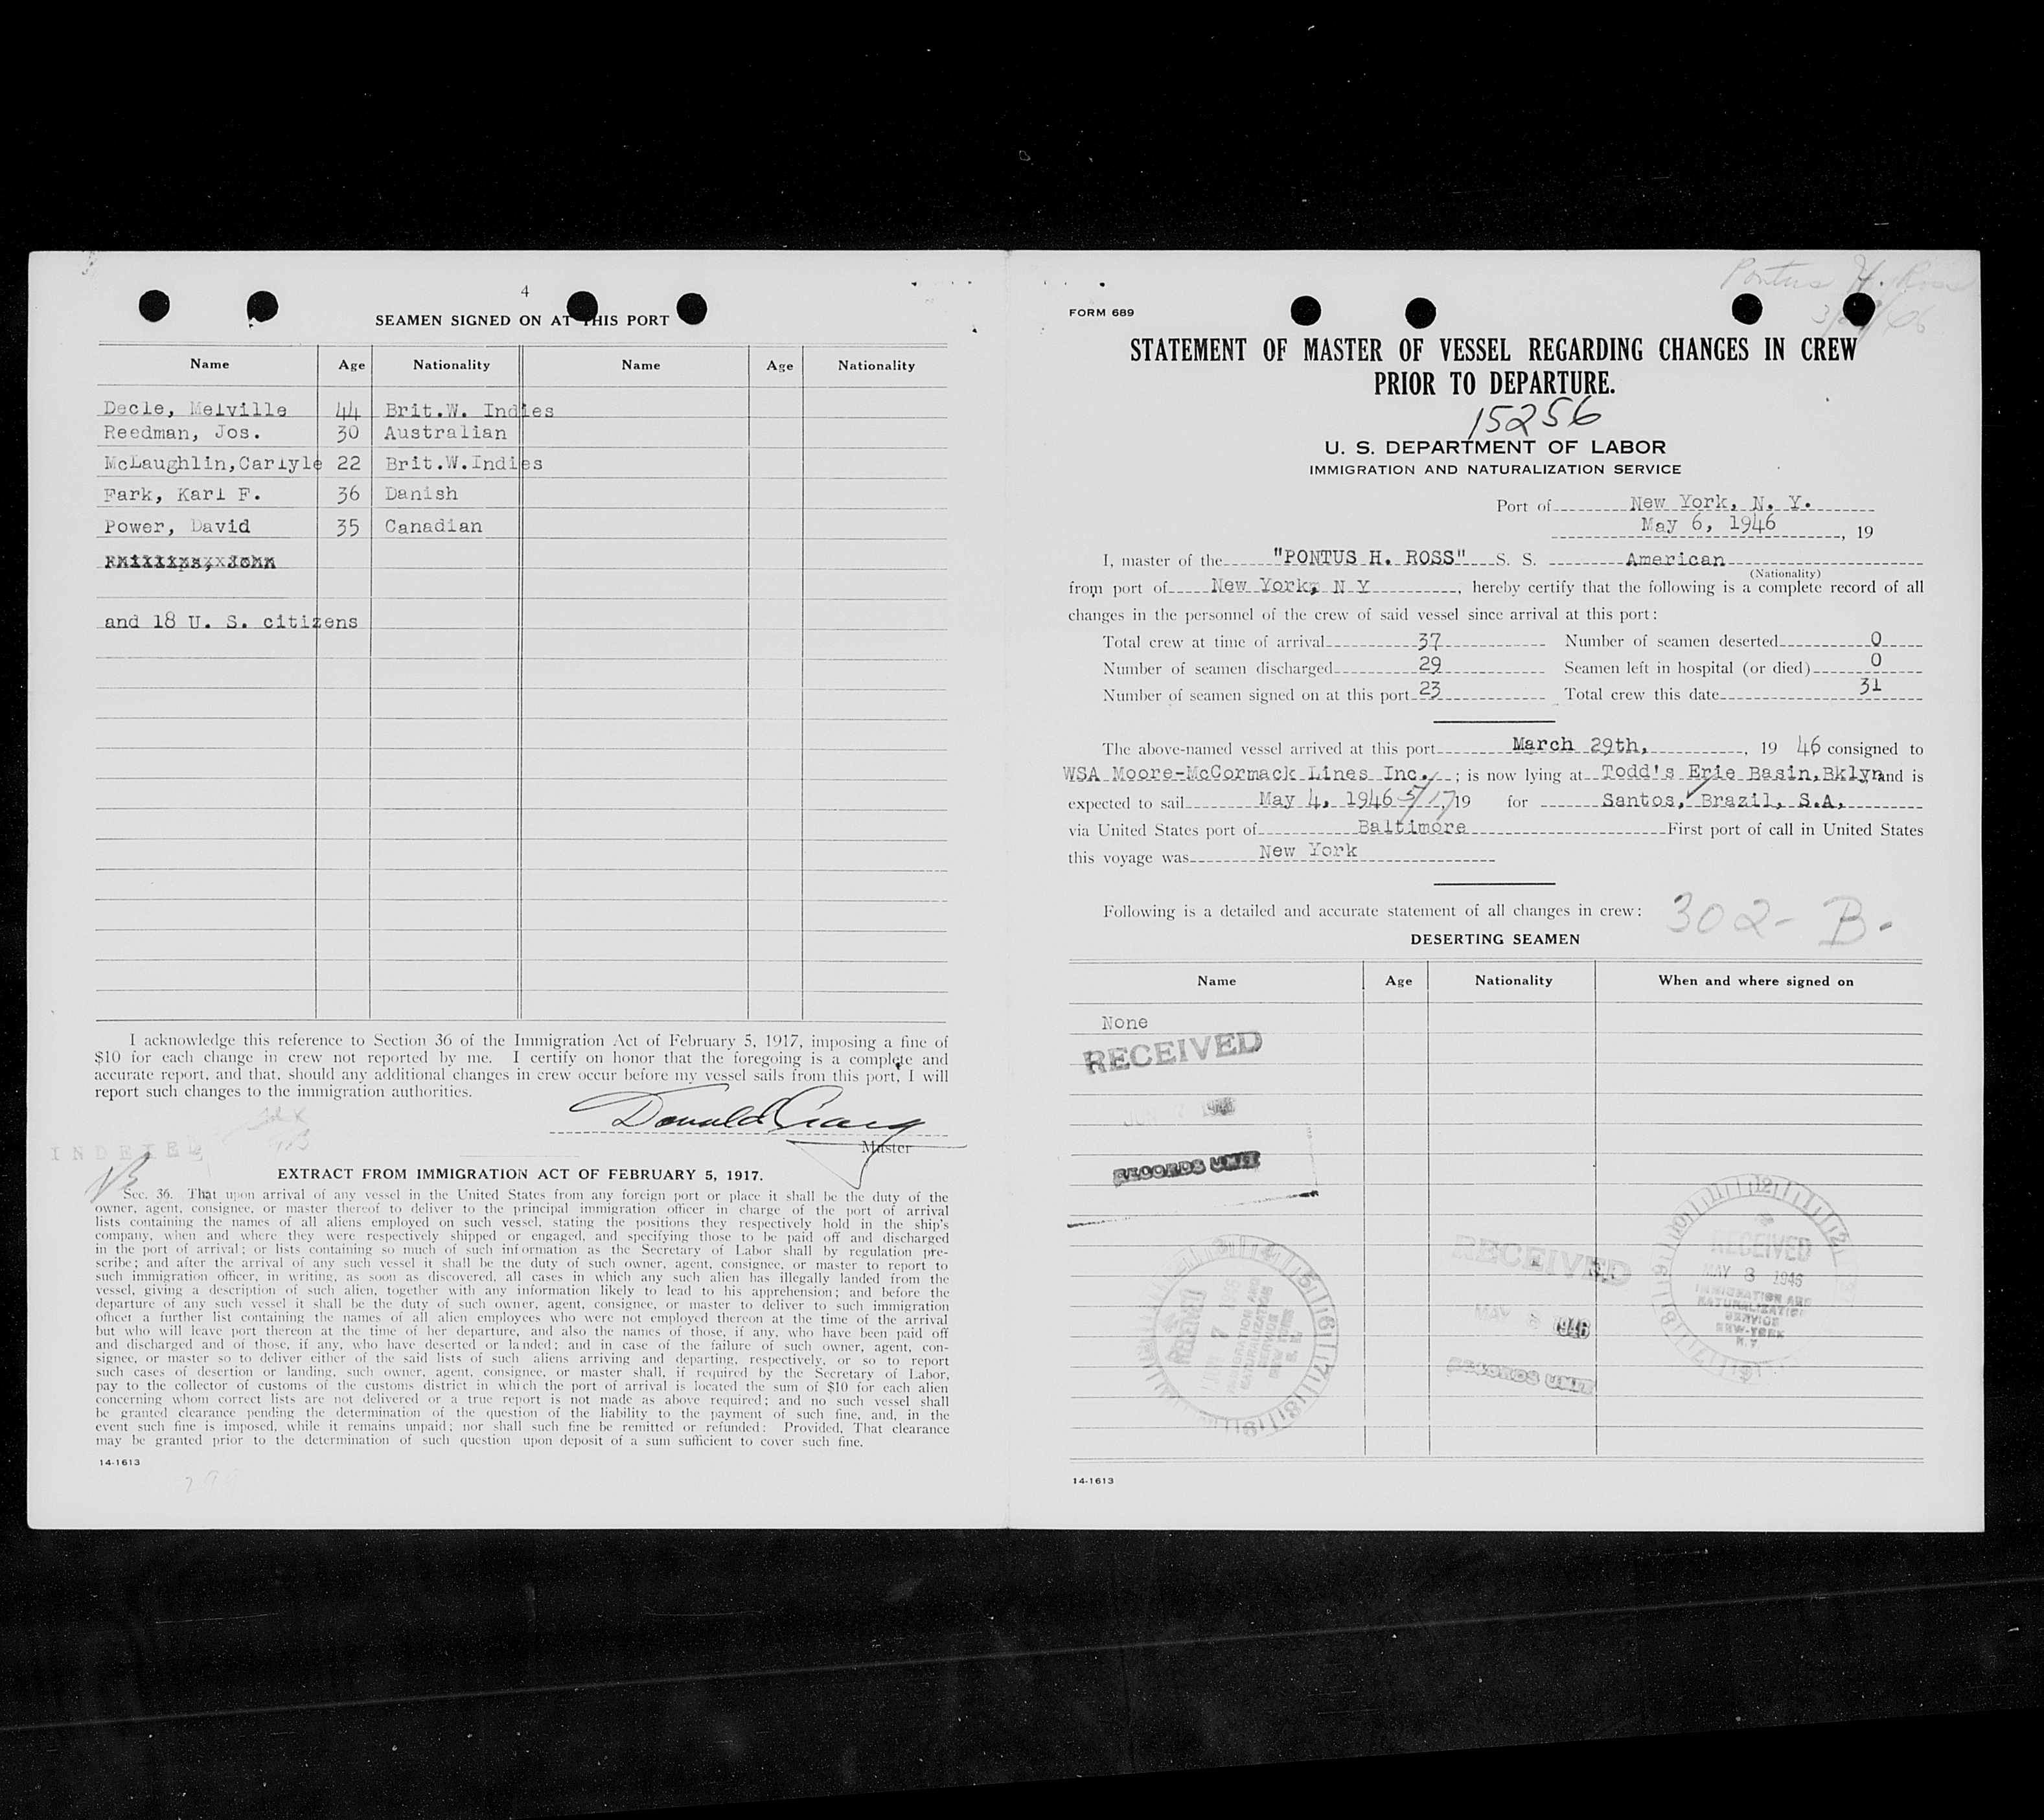 4
SEAMEN SIGNED ON AT THIS PORT
Name Age Nationality Name Age Nationality
Decle, Melville 44 Brit.W. Indies
Reedman, Jos. 30 Australian
McLaughlin,Carlyle 22 Brit.W.Indies
Fark, Karl F. 36 Danish
Power, David 35 Canadian
and 18 U. S. citizens
I acknowledge this reference to Section 36 of the Immigration Act of February 5, 1917, imposing a fine of
$10 for each change in crew not reported by me. I certify on honor that the foregoing is a complete and
accurate report, and that, should any additional changes in crew occur before my vessel sails from this port, I will
report such changes to the immigration authorities.
Donald Craig
Master
INDEXED
EXTRACT FROM IMMIGRATION ACT OF FEBRUARY 5, 1917.
Sec. 36. That upon arrival of any vessel in the United States from any foreign port or place it shall be the duty of the
owner, agent, consignee, or master thereof to deliver to the principal immigration officer in charge of the port of arrival
lists containing the names of all aliens employed on such vessel, stating the positions they respectively hold in the ship's
company, when and where they were respectively shipped or engaged, and specifying those to be paid off and discharged
in the port of arrival; or lists containing so much of such information as the Secretary of Labor shall by regulation pre-
scribe; and after the arrival of any such vessel it shall be the duty of such owner, agent, consignee, or master to report to
such immigration officer, in writing, as soon as discovered, all cases in which any such alien has illegally landed from the
vessel, giving a description of such alien, together with any information likely to lead to his apprehension; and before the
departure of any such vessel it shall be the duty of such owner, agent, consignee, or master to deliver to such immigration
officer a further list containing the names of all alien employees who were not employed thereon at the time of the arrival
but who will leave port thereon at the time of her departure, and also the names of those, if any, who have been paid off
and discharged and of those, if any, who have deserted or landed; and in case of the failure of such owner, agent, con-
signee, or master so to deliver either of the said lists of such aliens arriving and departing, respectively, or so to report
such cases of desertion or landing, such owner, agent, consignee, or master shall, if required by the Secretary of Labor,
pay to the collector of customs of the customs district in which the port of arrival is located the sum of $10 for each alien
concerning whom correct lists are not delivered or a true report is not made as above required; and no such vessel shall
be granted clearance pending the determination of the question of the liability to the payment of such fine, and, in the
event such fine is imposed, while it remains unpaid; nor shall such fine be remitted or refunded: Provided, That clearance
may be granted prior to the determination of such question upon deposit of a sum sufficient to cover such fine.
14-1613
Pontus H. Ross
FORM 689
STATEMENT OF MASTER OF VESSEL REGARDING CHANGES IN CREW
PRIOR TO DEPARTURE.
15256
U. S. DEPARTMENT OF LABOR
IMMIGRATION AND NATURALIZATION SERVICE
Port of New York, N. Y.
May 6, 1946, 19
I, master of the "PONTUS H. ROSS" S. S. American
(Nationality)
from port of New York, N Y, hereby certify that the following is a complete record of all
changes in the personnel of the crew of said vessel since arrival at this port:
Total crew at time of arrival 37 Number of seamen deserted 0
Number of seamen discharged 29 Seamen left in hospital (or died) 0
Number of seamen signed on at this port 23 Total crew this date 31
The above-named vessel arrived at this port March 29th, , 19 46 consigned to
WSA Moore-McCormack Lines Inc. ; is now lying at Todd's Erie Basin,Bklyn and is
expected to sail May 4, 1946 5/17, 19 for Santos, Brazil, S.A.
via United States port of Baltimore First port of call in United States
this voyage was New York
Following is a detailed and accurate statement of all changes in crew:
302- B.
DESERTING SEAMEN
Name Age Nationality When and where signed on
None
RECEIVED
JUN 7 1946
RECORDS UNIT
RECEIVED
MAY 8 1946
IMMIGRATION AND
NATURALIZATION
SERVICE
NEW-YORK
N.Y
RECEIVED
MAY 1946
RECORDS UNIT
RECEIVED
JUN 7 1946
IMMIGRATION AND
NATURALIZATION
SERVICE
14-1613